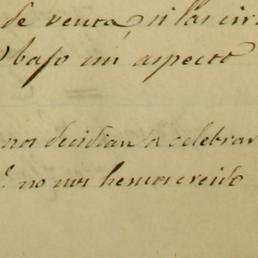 de venta, si las cir
bajo un aspecto
nos decidian a celebrar
no nos hemos creido